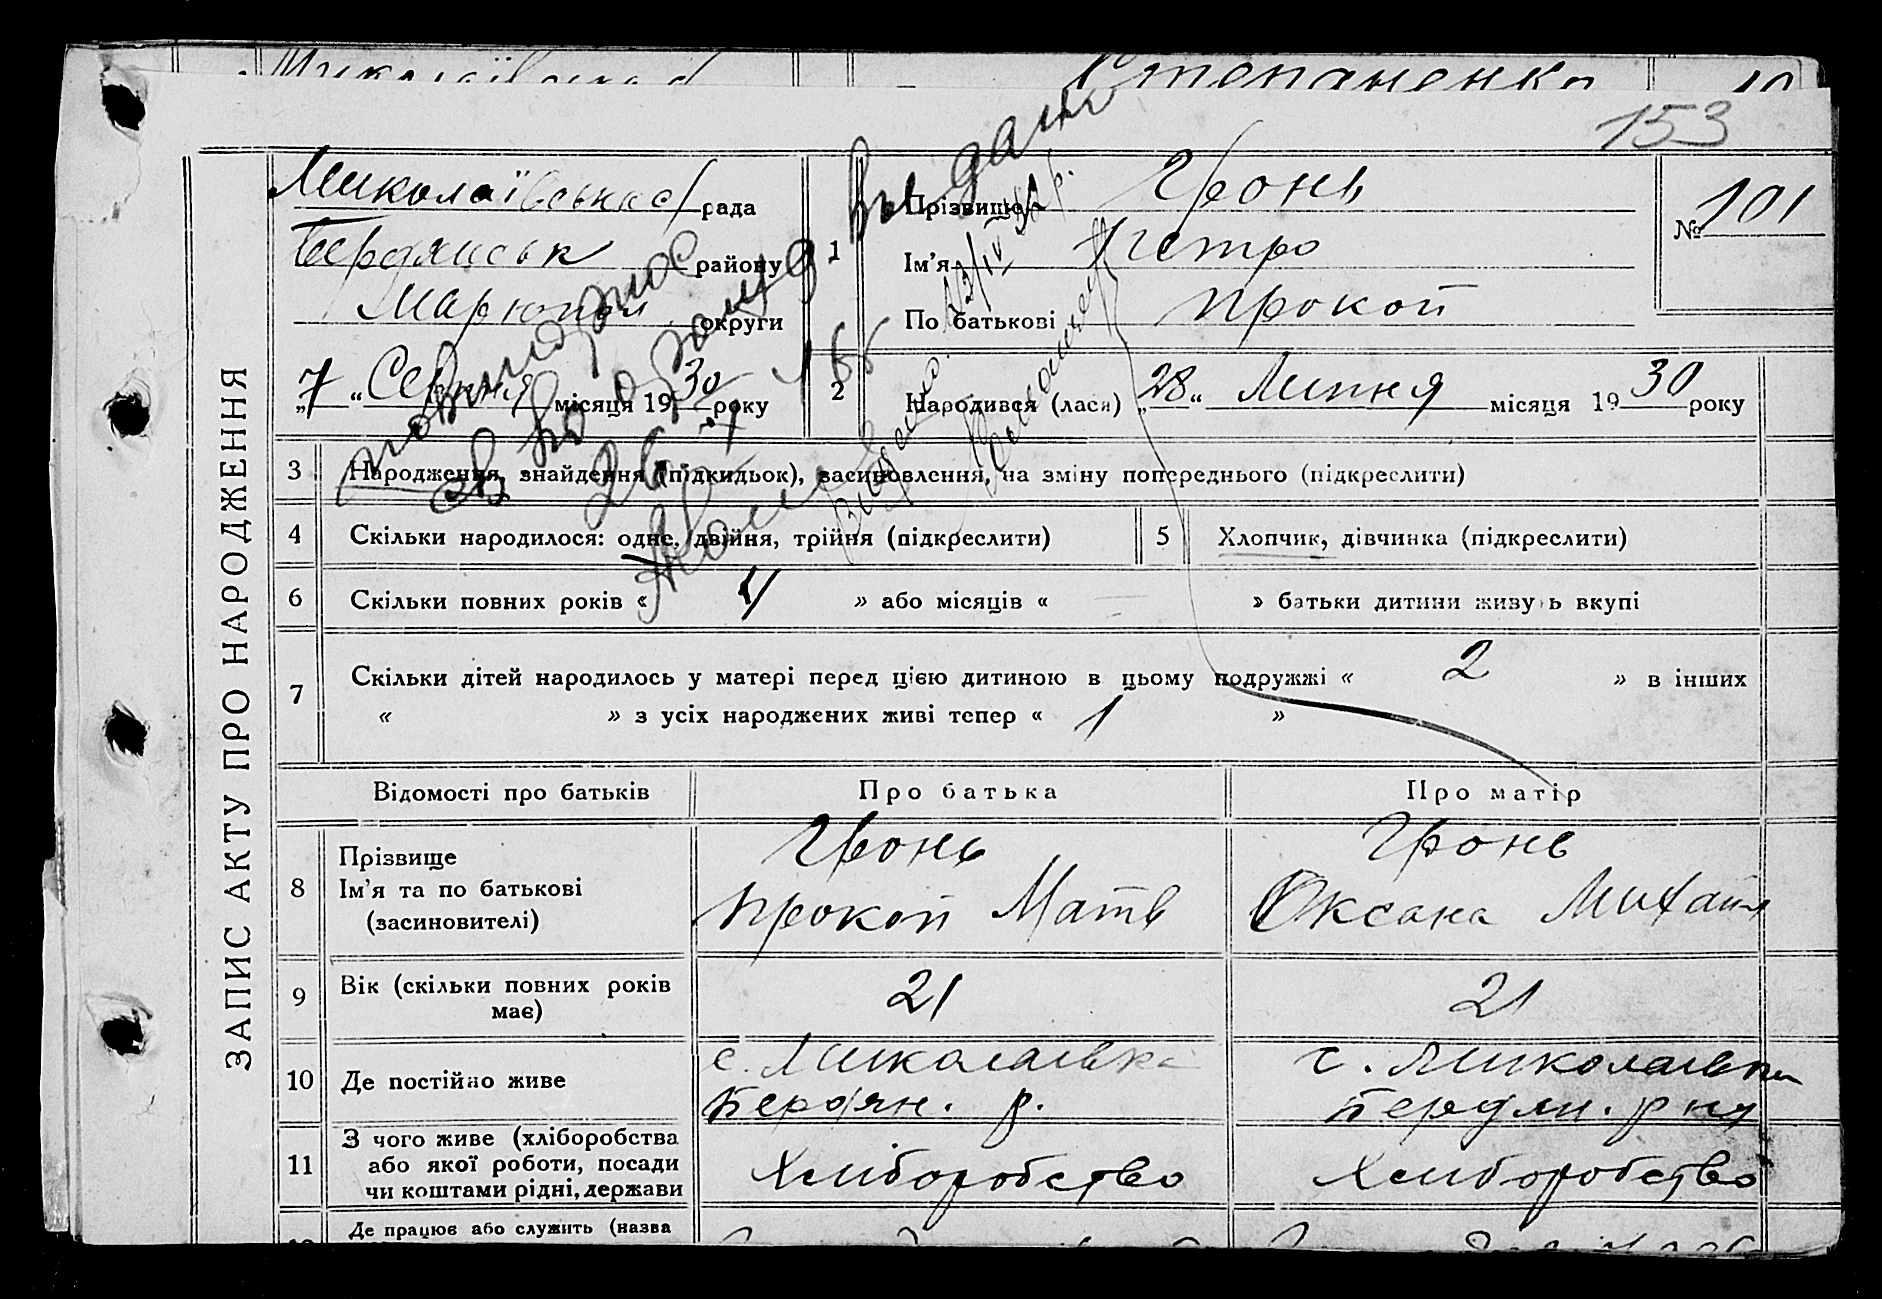 Степаненко
153
Миколаївська рада
Бердянськ району
Маріюпол округи
„7“ Серпня місяця 1930 року
1
Прізвище Гронь
Ім'я Петро
По батькові Прокоп
№ 101
2
Народився (лася) „28“ Липня місяця 1930 року
Выдано
повторное
св во о рожд
ЗАПИС АКТУ ПРО НАРОДЖЕННЯ
3 Народження, знайдення (підкидьок), засиновлення, на зміну попереднього (підкреслити)
4 Скільки народилося: одне, двійня, трійня (підкреслити)
5 Хлопчик, дівчинка (підкреслити)
6 Скільки повних років « 4 » або місяців « — » батьки дитини живуть вкупі
7 Скільки дітей народилось у матері перед цією дитиною в цьому подружжі « 2 » в інших
« » з усіх народжених живі тепер « 1 »
Відомості про батьків Про батька Про матір
8 Прізвище Гронь Гронь
Ім'я та по батькові Прокоп Матв Оксана Михайл
(засиновителі)
9 Вік (скільки повних років має) 21 21
10 Де постійно живе с. Миколаївка с. Миколаївка
Бердян. р. Бердян. р ну
11 З чого живе (хліборобства або якої роботи, посади чи коштами рідні, держави Хліборобство Хліборобство
Де працює або служить (назва